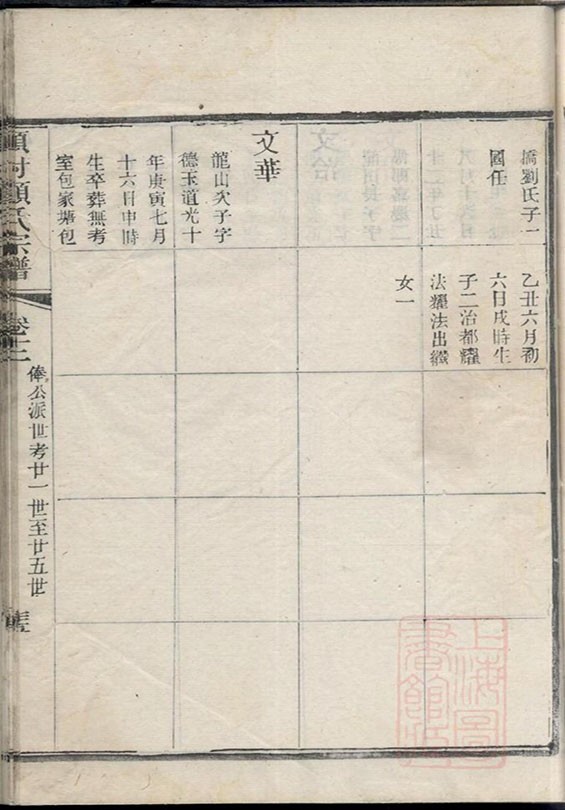 橋劉氏子一
國任
文華
龍山次子字
德玉道光十
年庚寅七月
十六日申時
生卒葬無考
室包家塘包
乙丑六月初
六日戌時生
子二治都耀
法耀法出繼
女一
顧氏宗譜
卷十二
俸公派世考廿一世至廿五世
上海圖書館藏